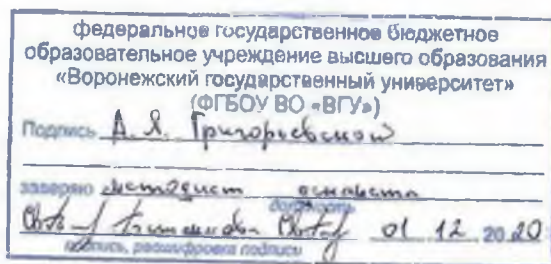 федеральное государственное бюджетное
образовательное учреждение высшего образования
«Воронежский государственный университет»
(ФГБОУ ВО «ВГУ»)
Подпись А. Я. Григорьевской
заверяю
должность
01 12 2020
подпись, расшифровка подписи